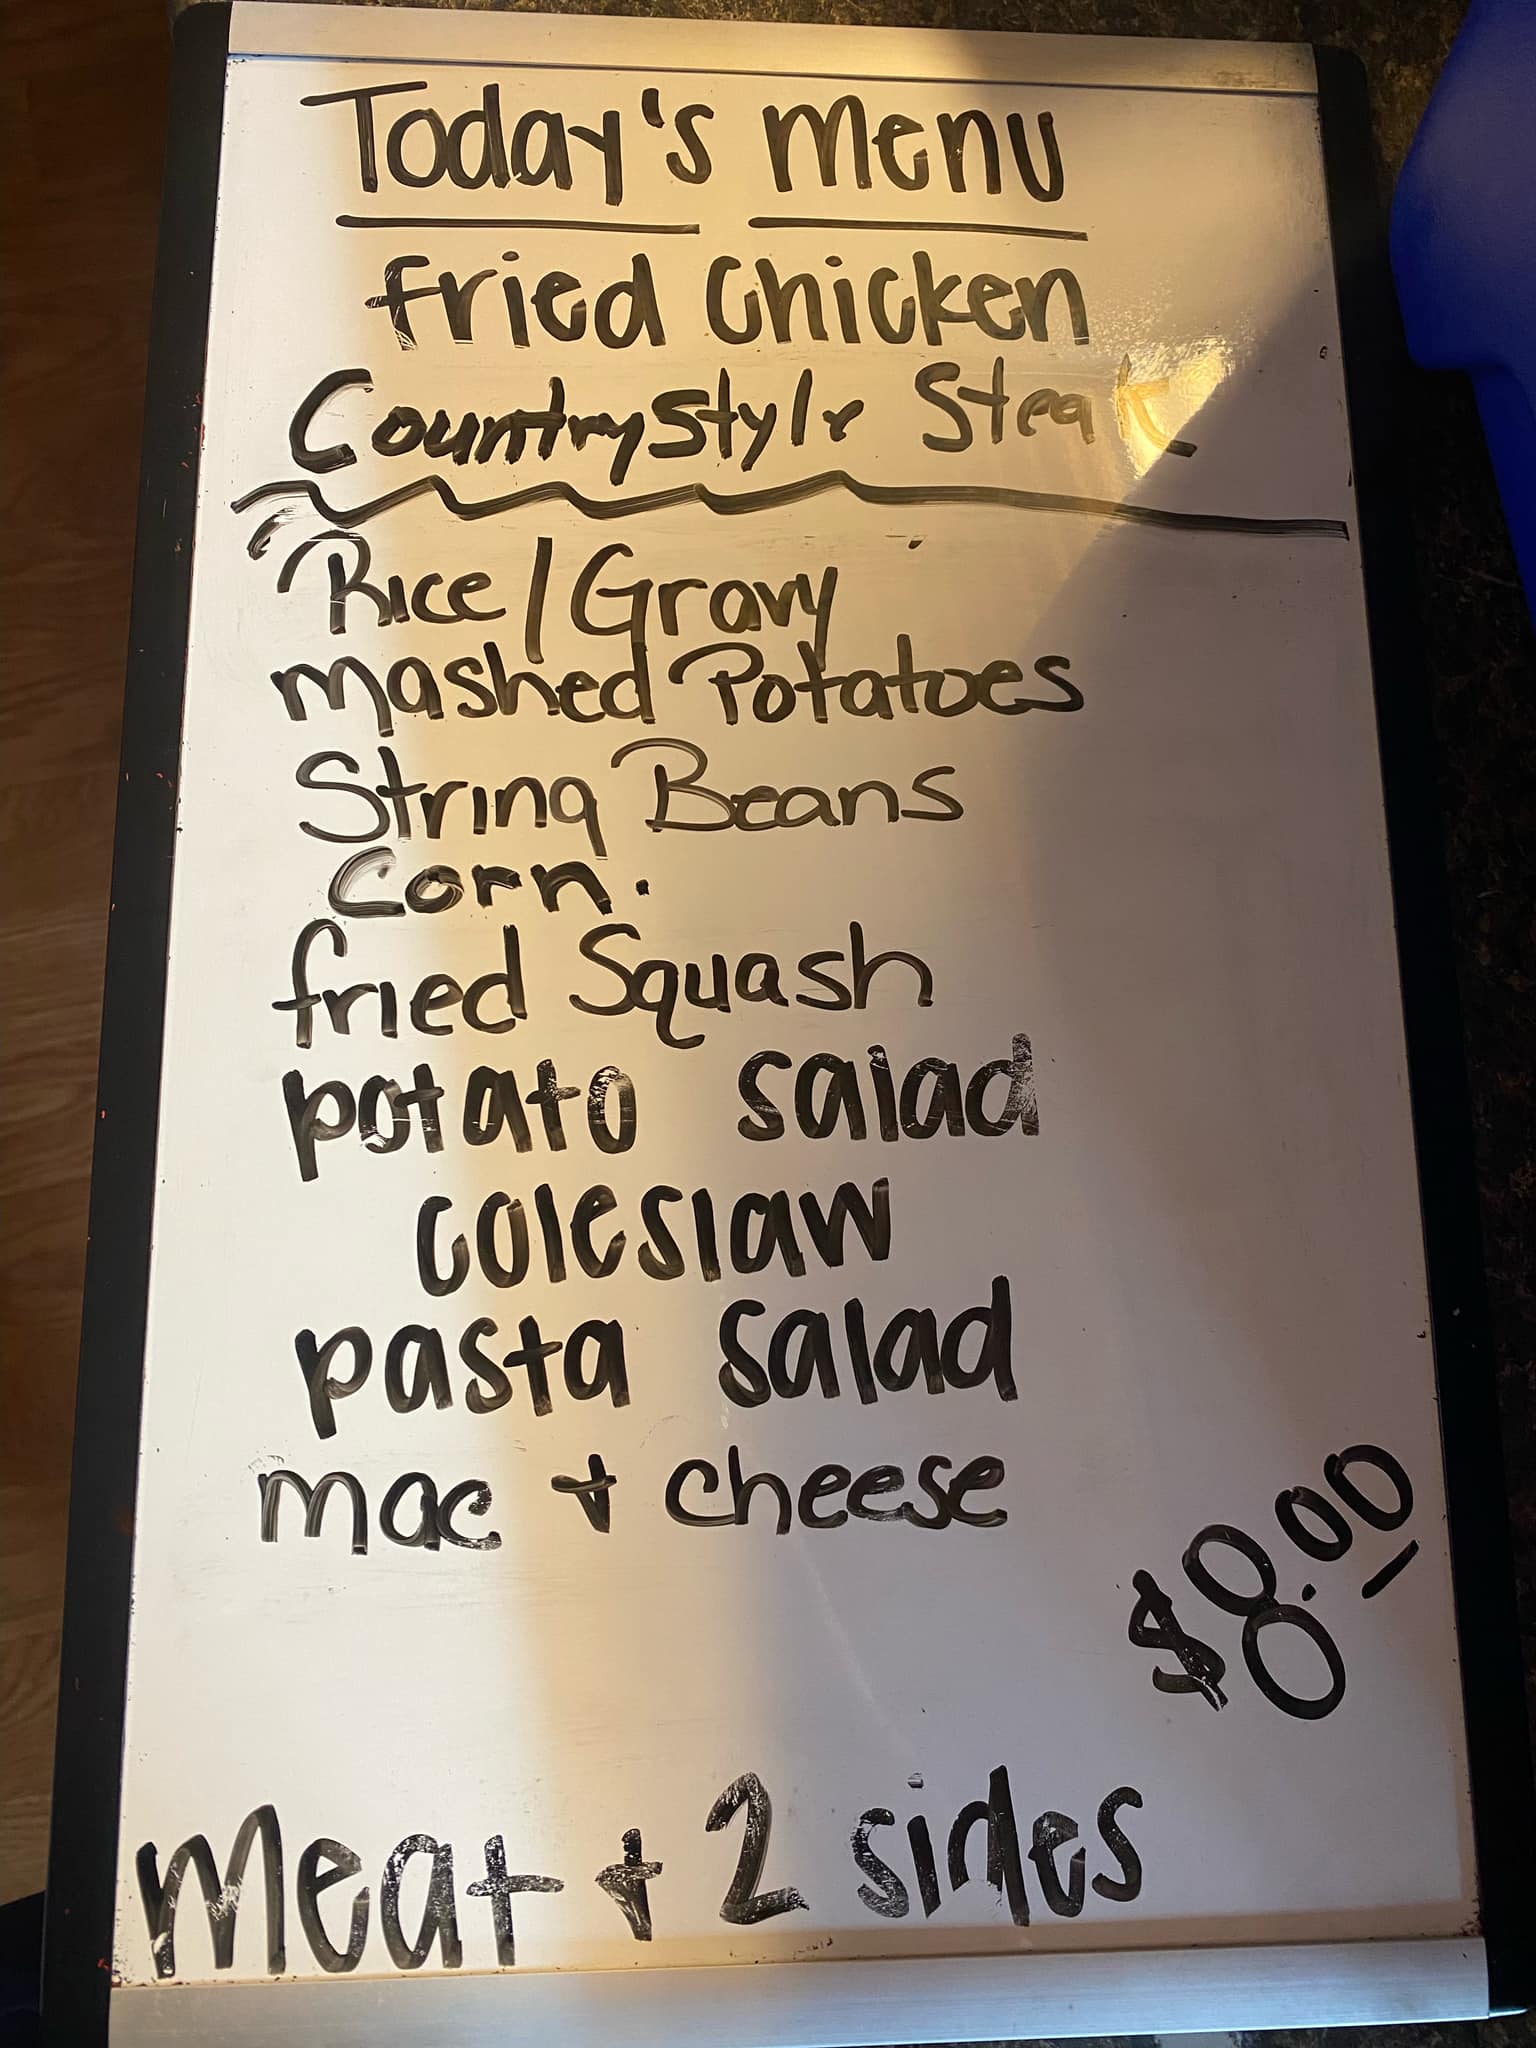 Today's menu
fried chicken
Country Style Steak
Rice/Gravy
mashed Potatoes
String Beans
Corn.
fried Squash
potato salad
coleslaw
pasta salad
mac + cheese
$8.00
meat + 2 sides